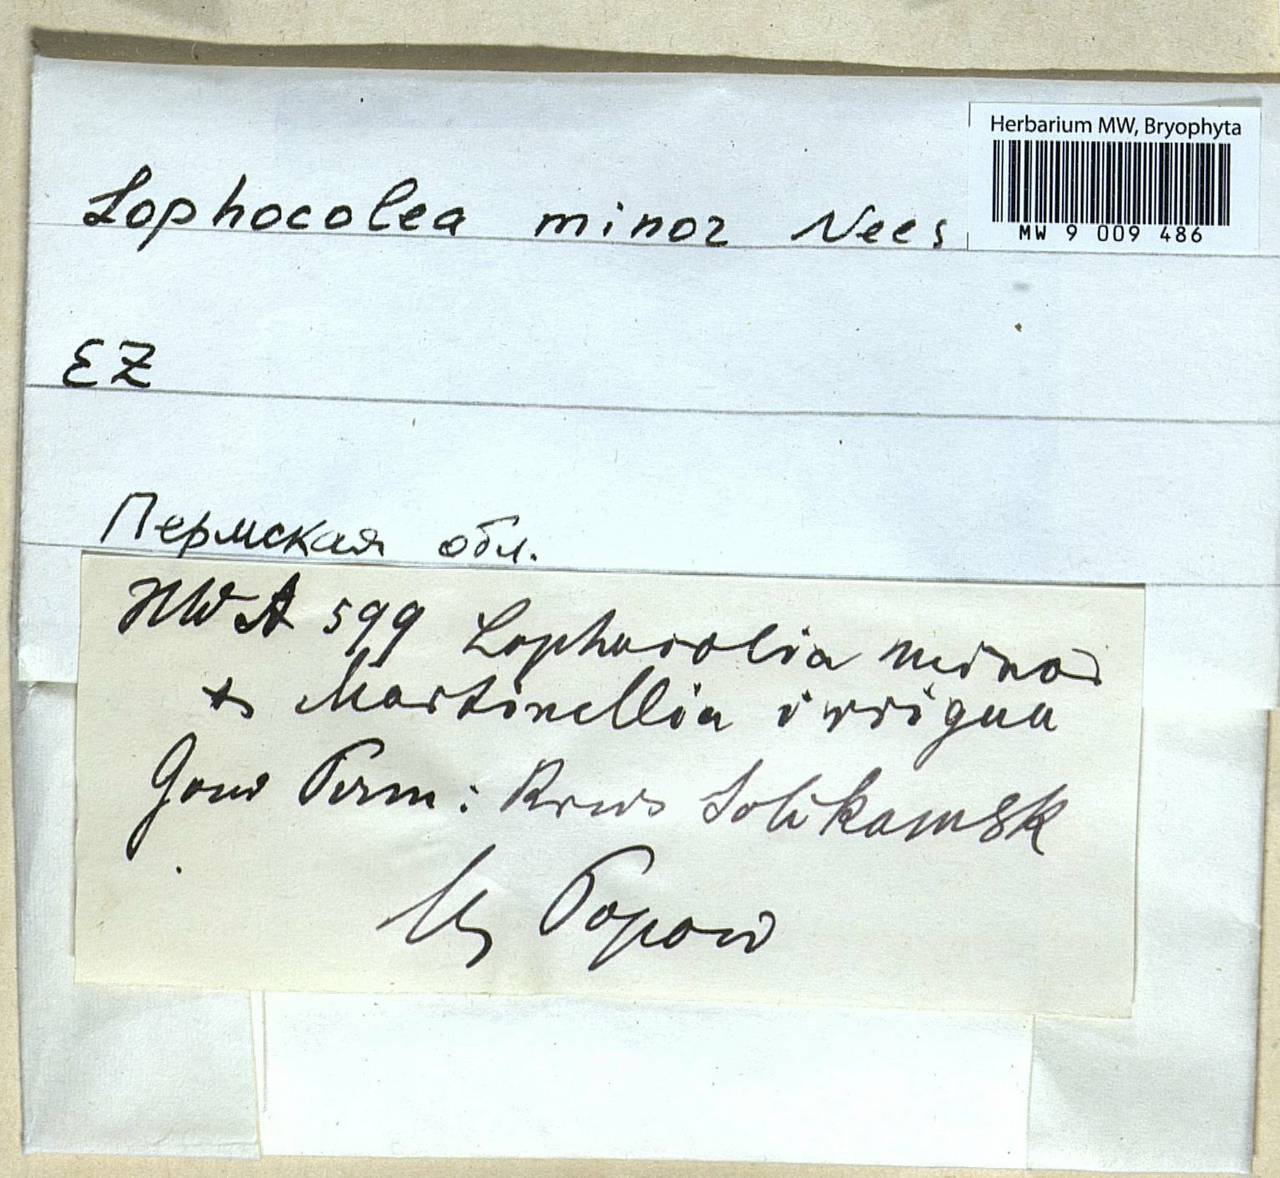 Herbarium MW, Bryophyta
MW 9 009 486
Lophocolea minor Nees
EZ
Пермская обл.
HWA 599 Lophocolia minor
+ Martinellia irrigua
Gouv Perm: Kreis Solikamsk
Popow